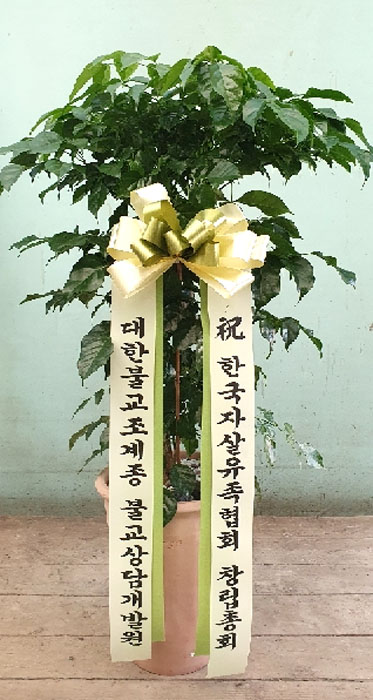 祝 한국자살유족협회 창립총회
대한불교조계종 불교상담개발원